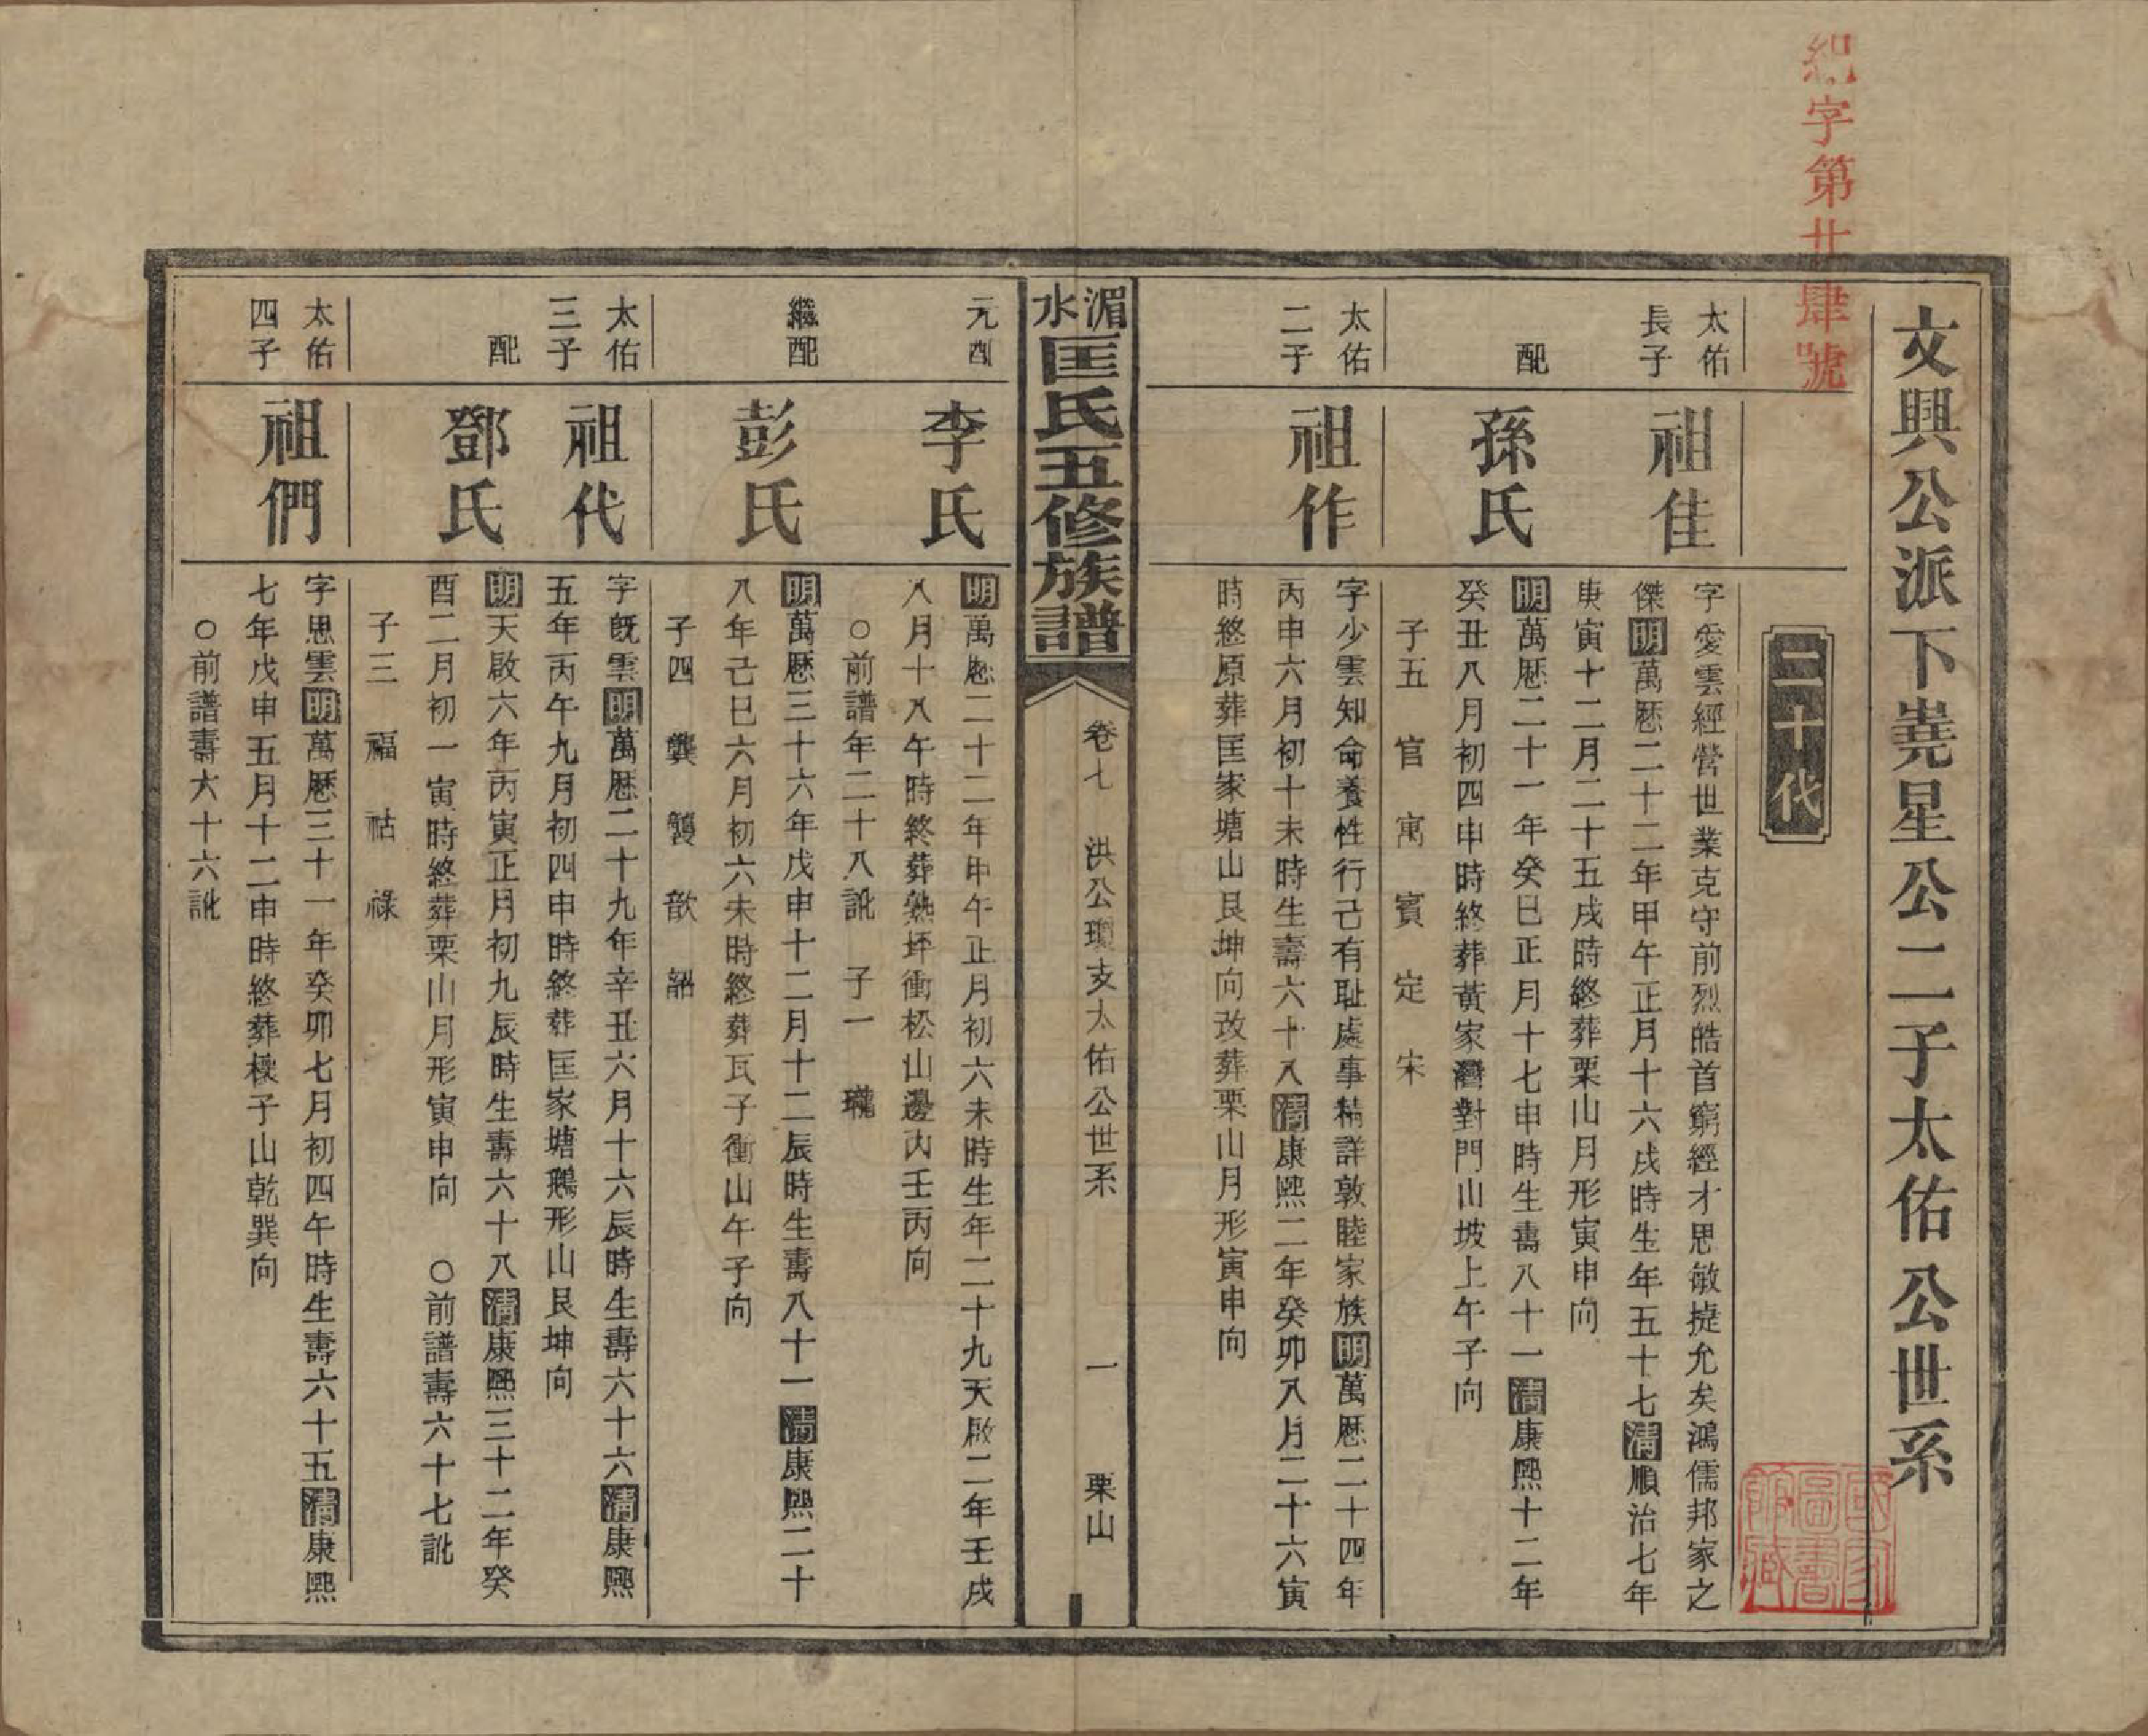 字第廿肆號
文興公派下堯星公二子太佑公世系
二十代
太佑
長子
祖佳
字愛雲經營世業克守前烈皓首窮經才思敏捷允矣鴻儒邦家之
傑明萬厯二十二年甲午正月十六戌時生年五十七清順治七年
庚寅十二月二十五戌時終葬栗山月形寅申向
配
孫氏
明萬厯二十一年癸巳正月十七申時生壽八十一清康熙十二年
癸丑八月初四申時終葬黃家灣對門山坡上午子向
子五 官 寓 賓 定 宋
太佑
二子
祖作
字少雲知命養性行己有耻處事精詳敦睦家族明萬厯二十四年
丙申六月初十未時生壽六十八清康熙二年癸卯八月二十六寅
時終原葬匡家塘山艮坤向改葬栗山月形寅申向
湄水匡氏五修族譜
卷七 洪公瓊支太佑公世系 一 栗山
元配
李氏
明萬厯二十二年甲午正月初六未時生年二十九天啟二年壬戌
八月十八午時終葬熟坪衝松山邊內壬丙向
○前譜年二十八訛 子一 瓏
繼配
彭氏
明萬厯三十六年戊申十二月十二辰時生壽八十一清康熙二十
八年己巳六月初六未時終葬瓦子衝山午子向
子四 龔 襲 歆 韶
太佑
三子
祖代
字旣雲明萬厯二十九年辛丑六月十六辰時生壽六十六清康熙
五年丙午九月初四申時終葬匡家塘鵝形山艮坤向
配
鄧氏
明天啟六年丙寅正月初九辰時生壽六十八清康熙三十二年癸
酉二月初一寅時終葬栗山月形寅申向 ○前譜壽六十七訛
子三 福 祜 祿
太佑
四子
祖們
字思雲明萬厯三十一年癸卯七月初四午時生壽六十五清康熙
七年戊申五月十二申時終葬樓子山乾巽向
○前譜壽六十六訛
國家
圖書
館藏